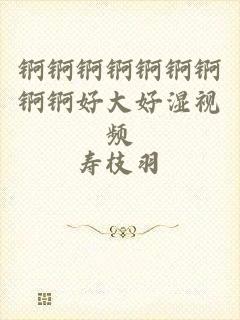 锕锕锕锕锕锕锕
锕锕好大好湿视
频
寿枝羽